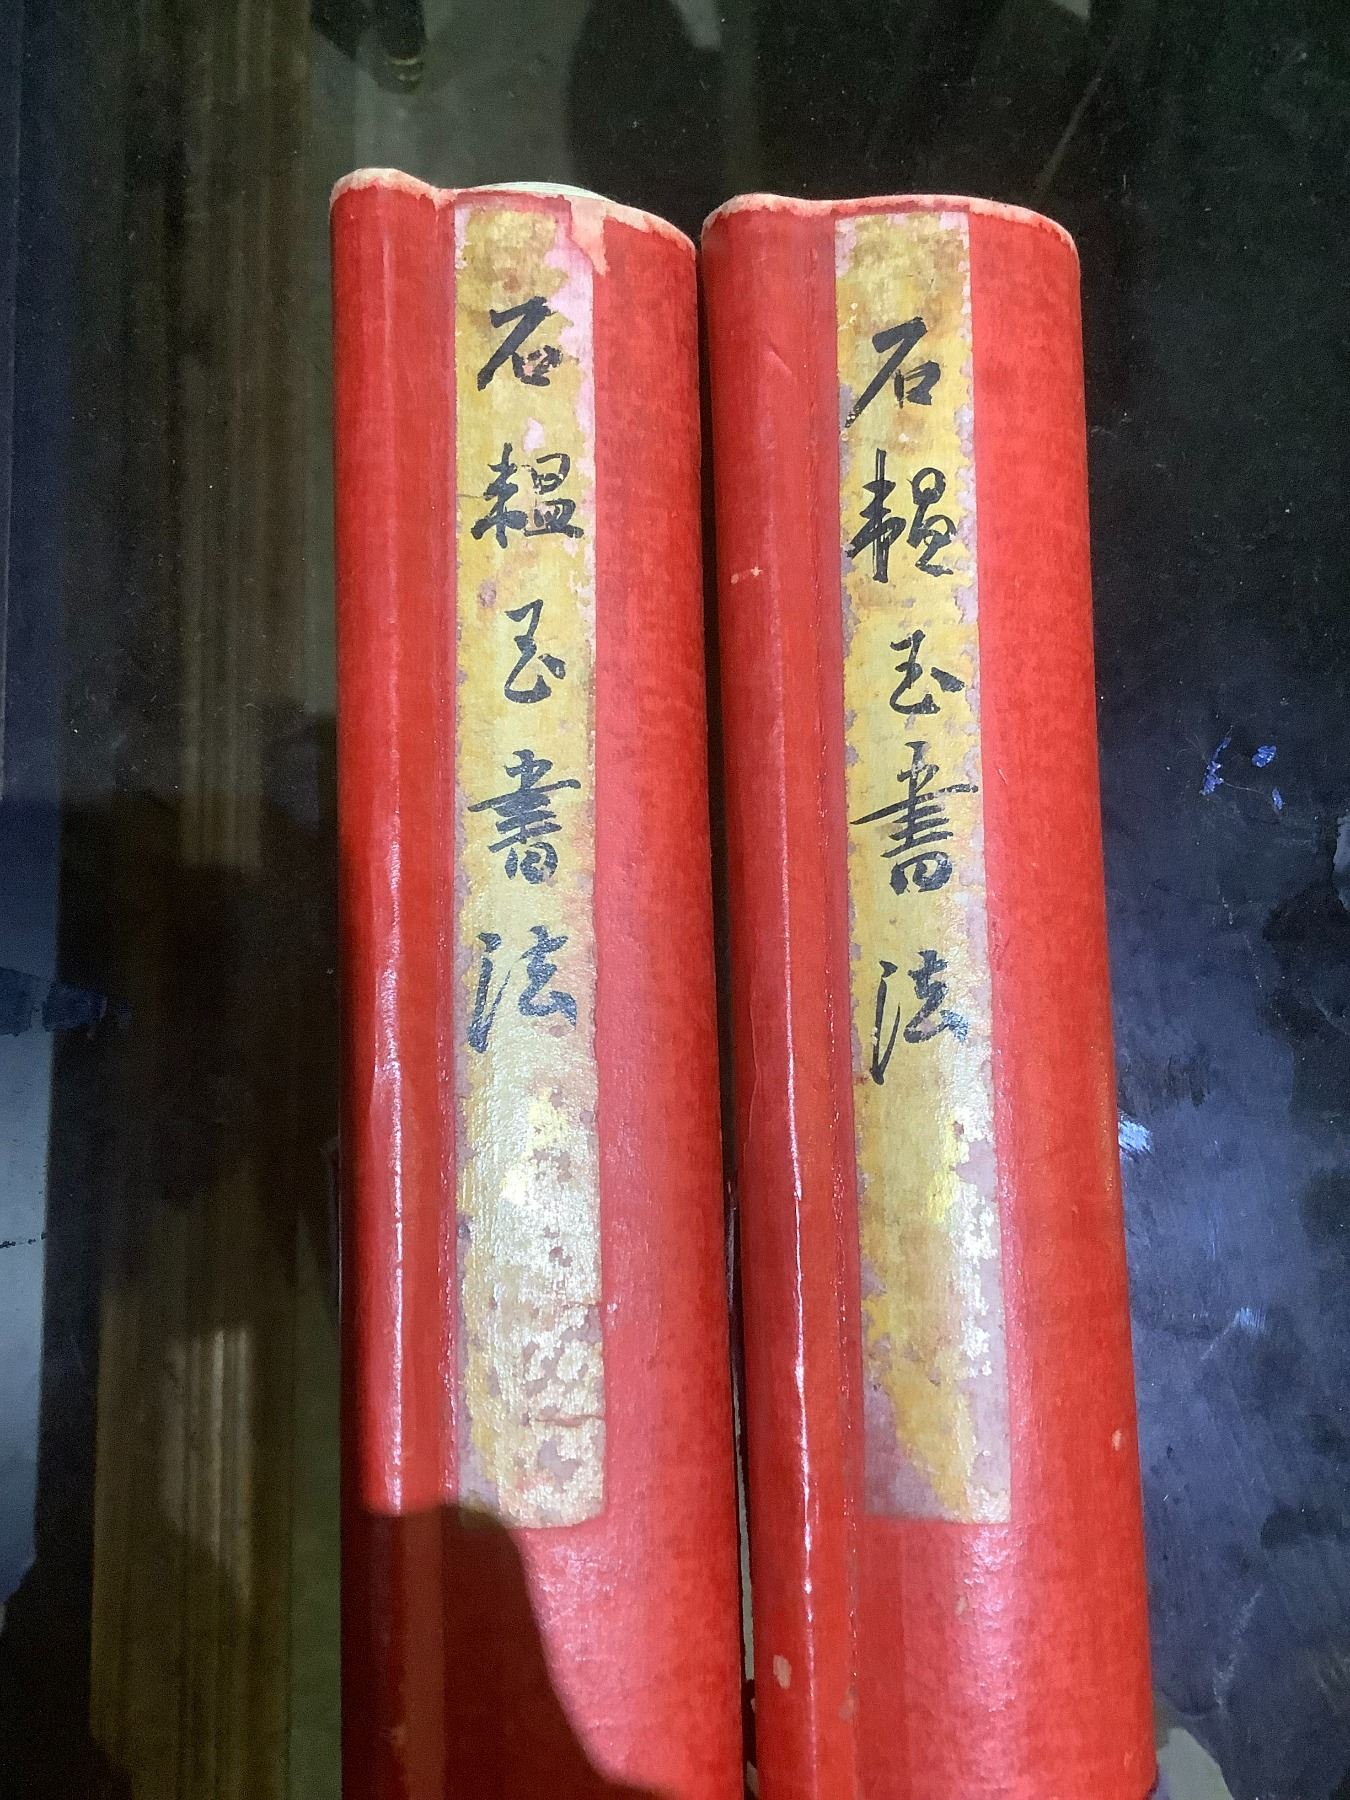 石韞玉書法
石韞玉書法